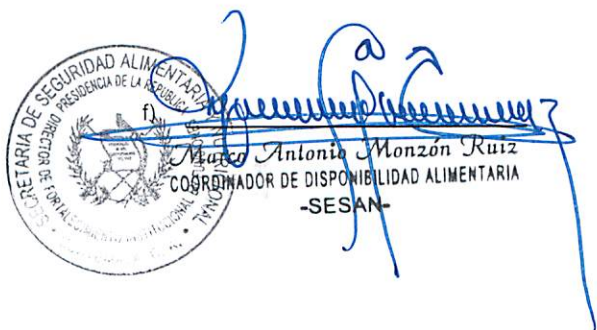 SECRETARIA DE SEGURIDAD ALIMENTARIA
PRESIDENCIA DE LA REPUBLICA
DIRECTOR DE FORTALECIMIENTO INSTITUCIONAL
f)
Marco Antonio Monzón Ruiz
COORDINADOR DE DISPONIBILIDAD ALIMENTARIA
-SESAN-